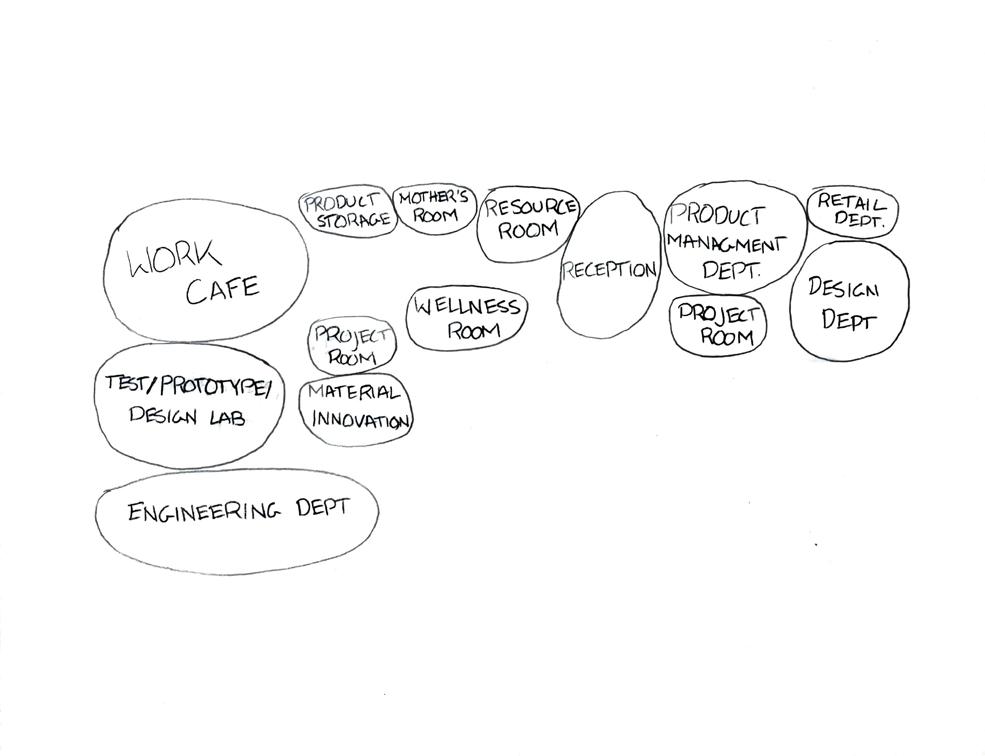 WORK
CAFE
PRODUCT
STORAGE
MOTHER'S
ROOM
RESOURCE
ROOM
RECEPTION
PRODUCT
MANAGMENT
DEPT.
RETAIL
DEPT.
DESIGN
DEPT
PROJECT
ROOM
WELLNESS
ROOM
PROJECT
ROOM
MATERIAL
INNOVATION
TEST/PROTOTYPE/
DESIGN LAB
ENGINEERING DEPT